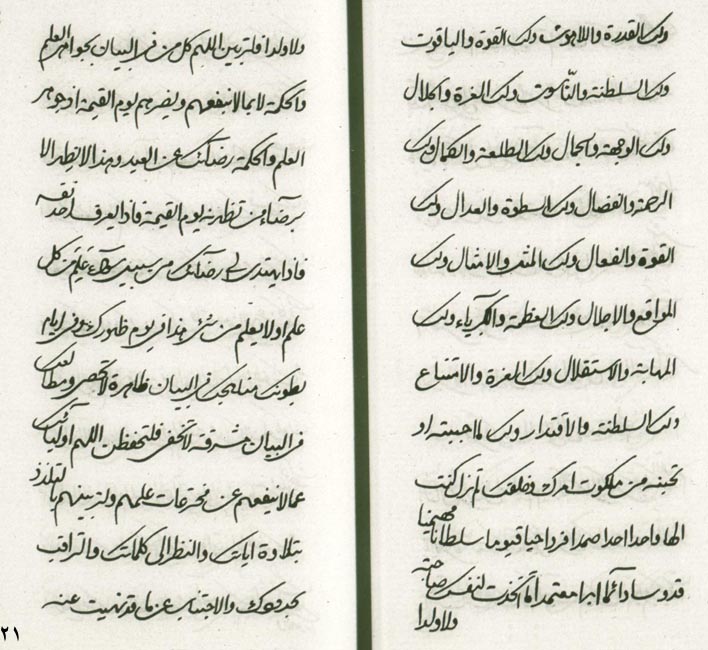 ولك القدرة واللاهوت ولك القوة والياقوت
ولك السلطنة والناسوت ولك العزة والجلال
ولك الوجهة والجمال ولك الطلعة والكمال ولك
الرحمة والفضال ولك السطوة والعدال ولك
القوة والفعال ولك المثل والامثال ولك
المواقع والاجلال ولك العظمة والكبرياء ولك
المهابة والاستقلال ولك العزة والامتناع
ولك السلطنة والاقتدار ولك ما احببته او
تحبنه من ملكوت امرك وخلقك لم تزل كنت
الها واحدا احدا صمدا فردا حيا قيوما سلطانا مهيمنا
قدوسا دائما ابدا معتمدا ما اتخذت لنفسك صاحبة
ولا ولدا
ولا ولدا فلتربين اللهم كل من في البيان بجواهر العلم
والحكمة لا بما لا ينفعهم ويضرهم يوم القيمة اذ جوهر
العلم والحكمة رضائك عن العبد وهذا لا يظهر الا
برضاء من تظهرنه يوم القيمة فاذا لم يعرف احد نفسه
فاذا يهتدي الى رضائك من سبيل سواء علم من كل
علم او لا يعلم من شيء هذا في يوم ظهورك وفي ايام
بطونك مناهجك في البيان ظاهرة لا تحصى ومطالعك
في البيان مشرقة لا تخفى فلتحفظن اللهم اوليائك
عما لا ينفعهم عن مخترعات علمهم ولتربينهم بالتلذذ
بتلاوة اياتك والنظر الى كلماتك والتراقب
بحدودك والاجتناب عن ما قد نهيت عنه
٢١